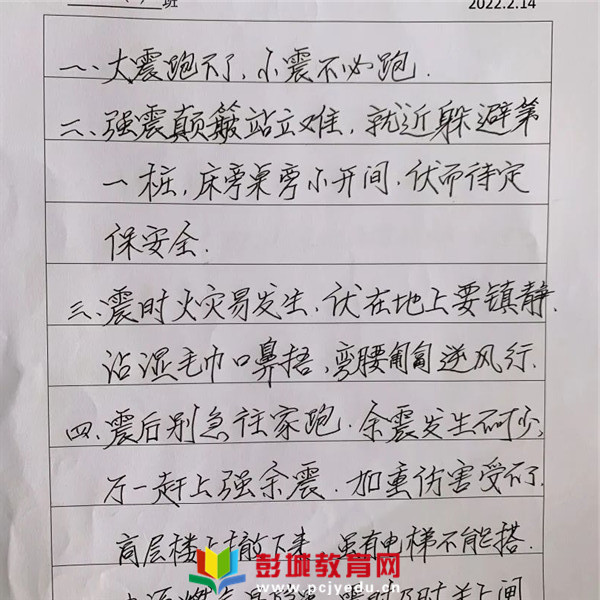 班 2022.2.14
一、大震跑不了,小震不必跑.
二、强震颠簸站立难,就近躲避第
一桩,床旁桌旁小开间,伏而待定
保安全.
三、震时火灾易发生,伏在地上要镇静,
沾湿毛巾口鼻捂,弯腰匍匐逆风行.
四、震后别急往家跑.余震发生不可少,
万一赶上强余震.加重伤害受不了.
高层楼上撤下来 虽有电梯不能搭.
彭城教育网
www.pcjyedu.cn